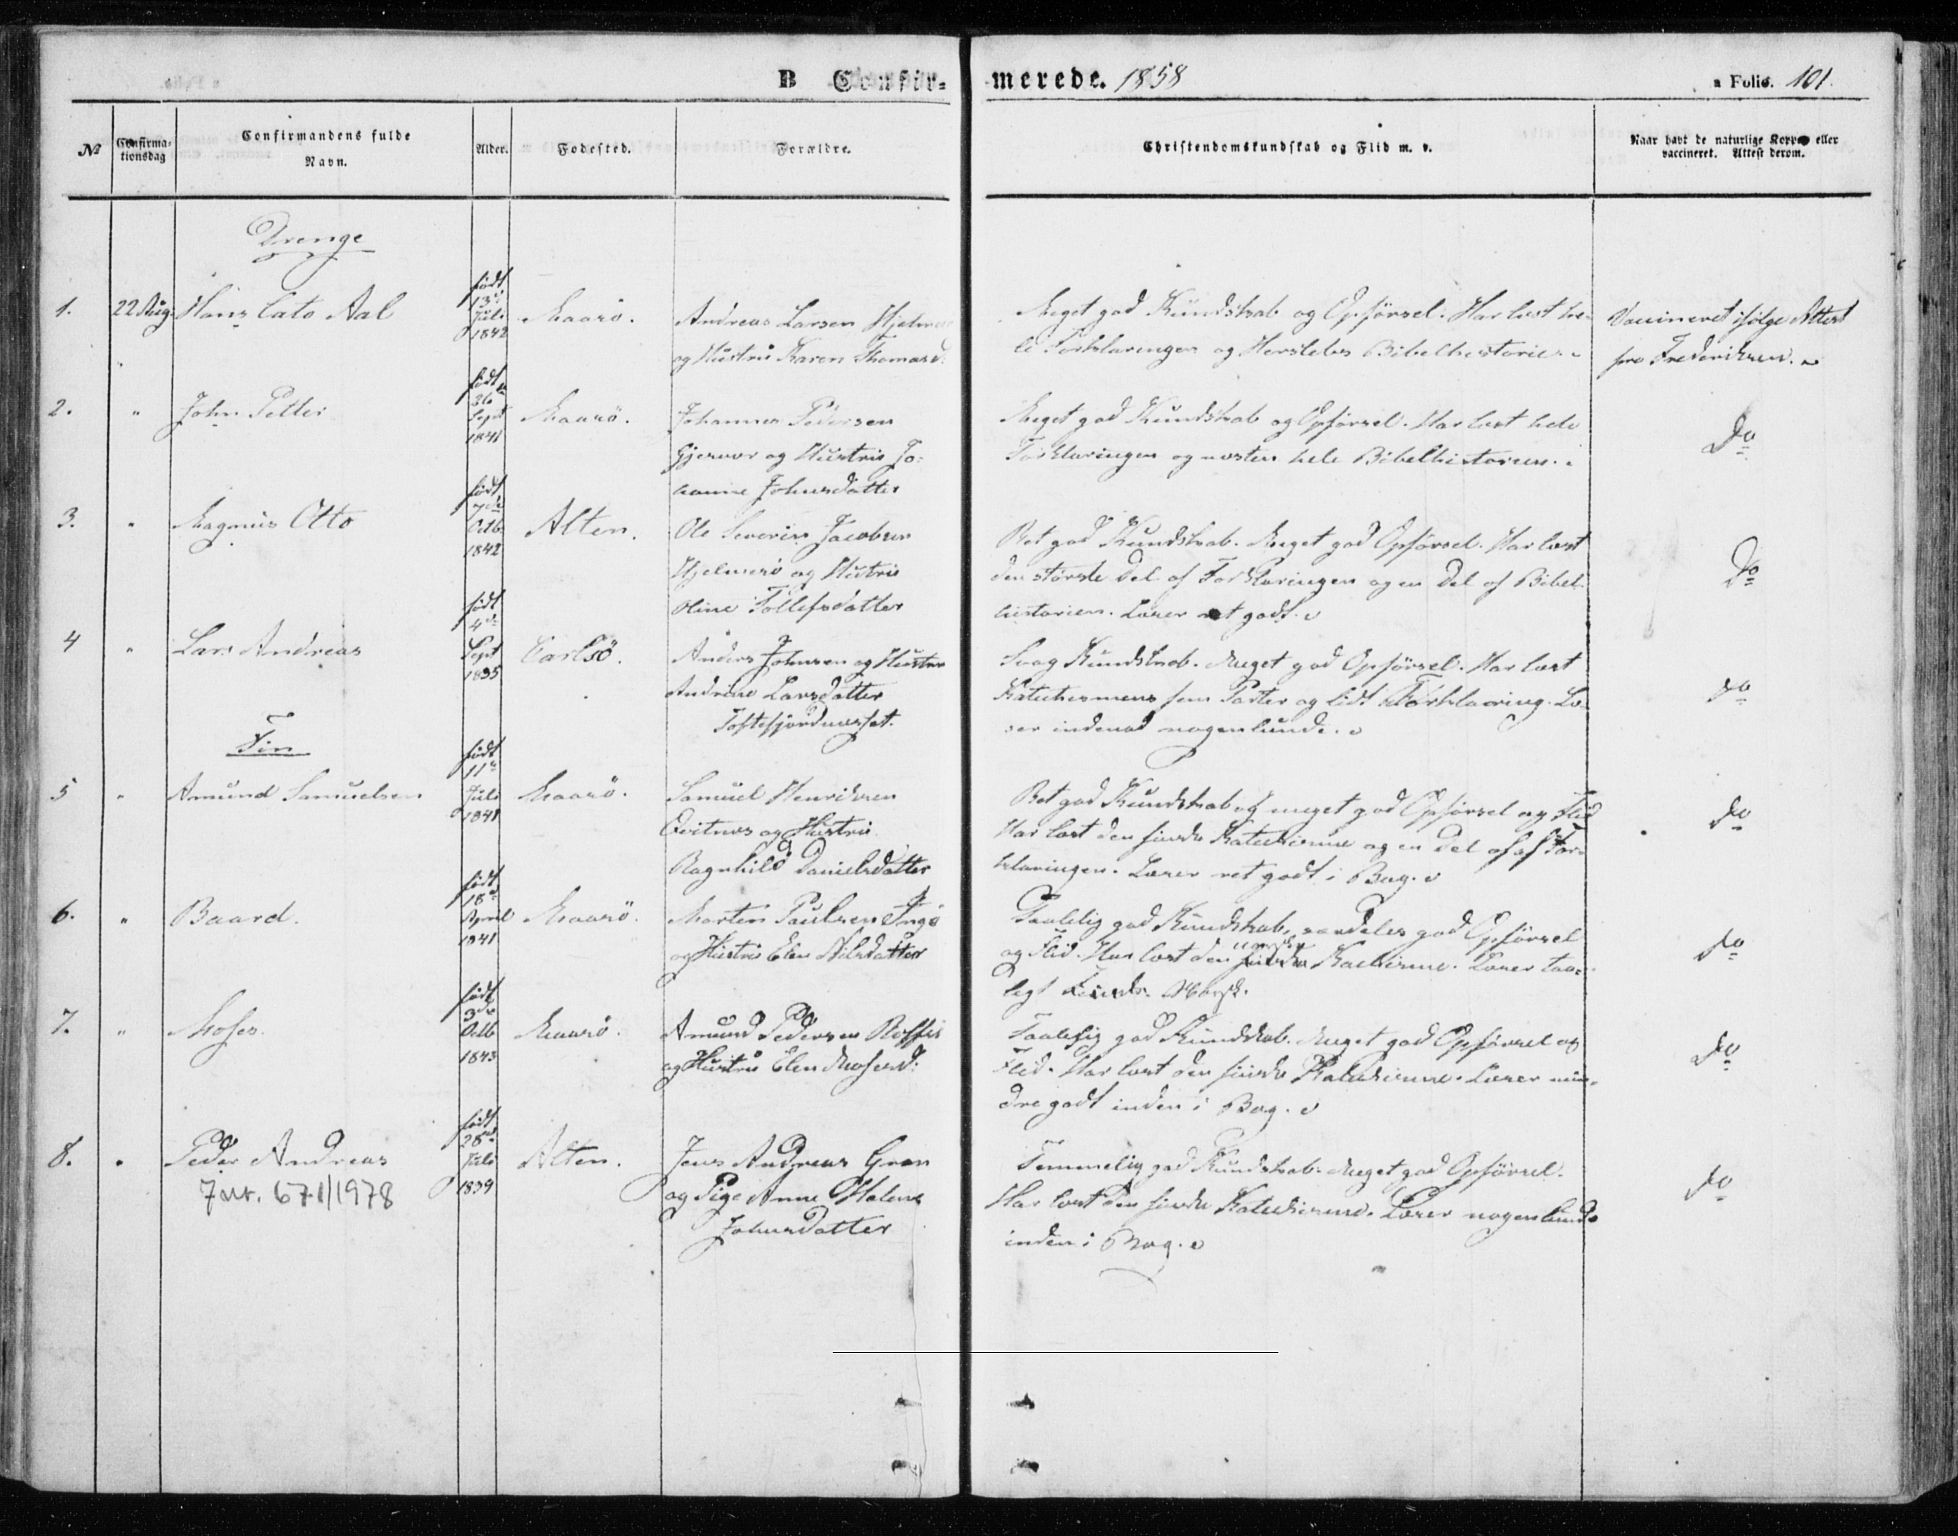 B Confir-
merede. 1858
a Folio. 101.
№
Confirma-
tionsdag
Confirmandens fulde
Navn.
Alder.
Fødested.
Forældre.
Christendomskundskab og Flid m. v.
Naar havt de naturlige Kopper eller
vaccineret. Attest derom.
Drenge
1.
22 Aug.
Hans Cato Aal
født
13de
Juli
1842
Maasö.
Andreas Larsen Hjelmes
og Hustru Karen Thomasd.
Meget god Kundskab og Opförsel. Har læst he-
le Forklaringen og Herslebs Bibelhistorie.
Vaccineret ifölge Attest
fra Frederiksen.
2.
"
John Petter
født
26de
Sept
1841
Maasö.
Johannes Pedersen
Gjesvær og Hustru Jo-
hanne Johnsdatter
Meget god Kundskab og Opförsel. Har læst hele
Forklaringen og næsten hele Bibelhistorien.
Do
3.
"
Magnus Otto
født
7de
Octb
1842
Alten.
Ole Severin Jacobsen
Hjelmsö og Hustru
Oline Tollefsdatter
Ret god Kundskab. Meget god Opförsel. Har læst
den störste Del af Forklaringen og en Del af Bibel-
historien. Læser ret godt.
Do
4
"
Lars Andreas
født
4de
Sept
1835
Carlsö.
Anders Johnsen og Hustru
Andrine Larsdatter
Toftefjordnæsset.
Svag Kundskab. Meget god Opförsel. Har læst
Katechismens fem Parter og lidt Forklaring. Læ-
ser indenad nogenlunde.
Do
Fin
5
"
Amund Samuelsen
født
11te
Juli
1841
Maasö.
Samuel Henriksen
Qvitnæs og Hustru
Ragnhild Danielsdatter
Ret god Kundskab og meget god Opförsel og Flid
Har læst den finske Katechisme og en Del af af For-
klaringen. Læser ret godt i Bog.
Do
6.
"
Baard.
født
18de
April
1841
Maasö.
Morten Paulsen Ingö
og Hustru Elen Nilsdatter
Taalelig god Kundskab, særdeles god Opförsel
og Flid. Har læst den finske norske Katechisme. Læser taa-
ligt Norsk.
Do
7.
"
Moses.
født
3die
Octb
1843
Maasö.
Amund Pedersen
og Hustru Elen Mosesd.
Taalelig god Kundskab. Meget god Opförsel og
Flid. Har læst den finske Katechisme. Læser min-
dre godt inden i Bog.
Do
8.
"
Peder Andreas
født
28de
Juli
1839
Alten.
Jens Andreas Gran
og Pige Anne Malene
Johnsdatter
Temmelig god Kundskab. Meget god Opförsel.
Har læst den finske Katechisme. Læser nogenlunde
inden i Bog.
Do
Jnr. 671/1978